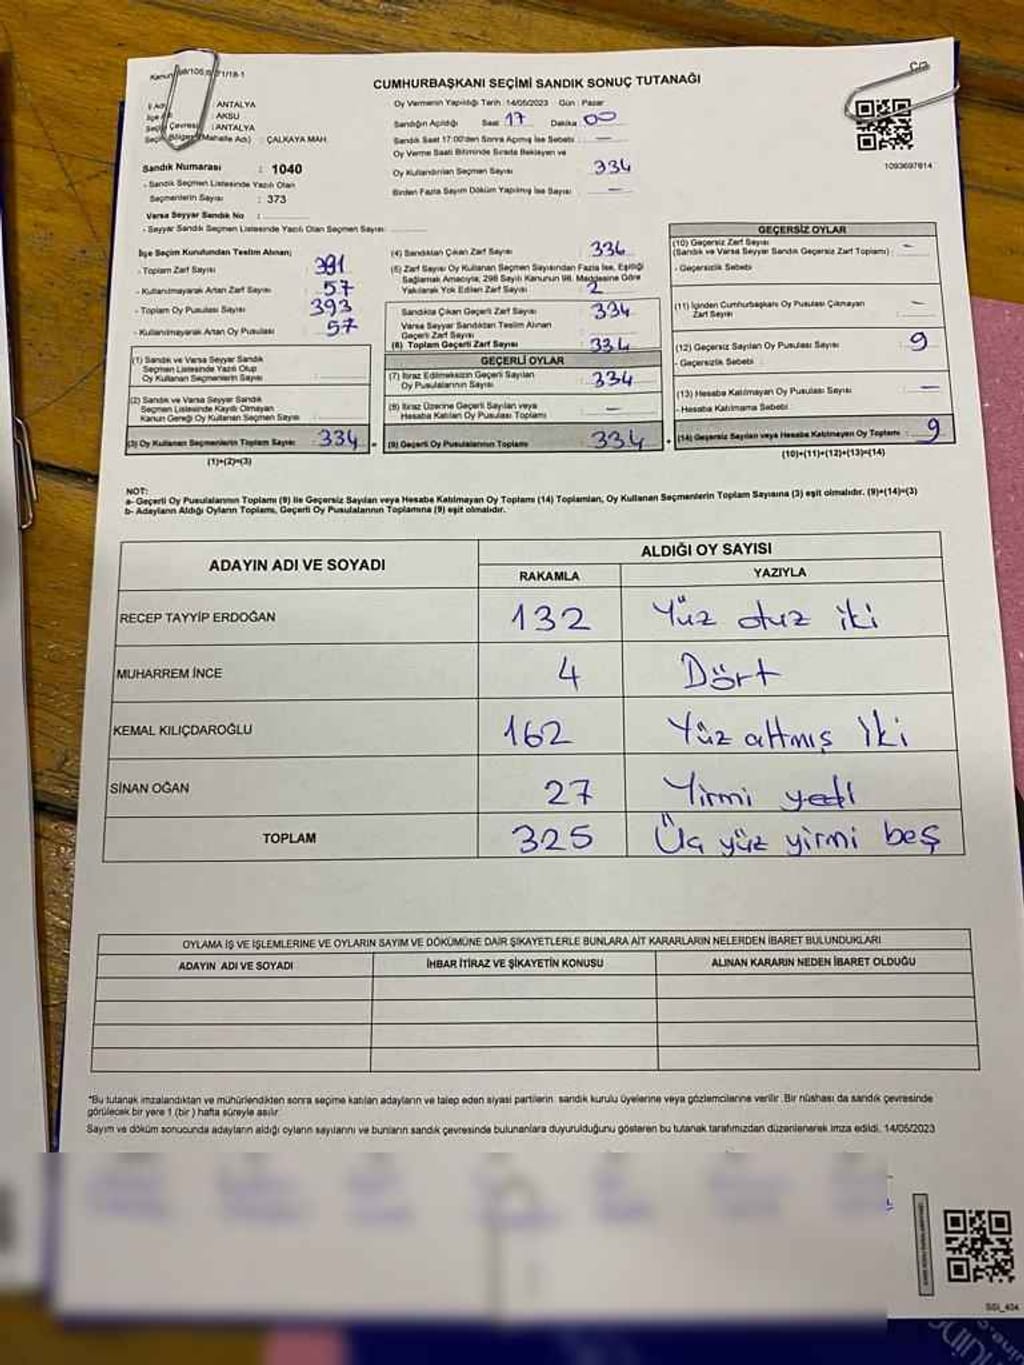 CUMHURBAŞKANI SEÇİMİ SANDIK SONUÇ TUTANAĞI
: ANTALYA
: AKSU
: ANTALYA
: ÇALKAYA MAH.
Sandık Numarası : 1040
- Sandık Seçmen Listesinde Yazılı Olan
Seçmenlerin Sayısı : 373
Varsa Seyyar Sandık No :
- Seyyar Sandık Seçmen Listesinde Yazılı Olan Seçmen Sayısı
Oy Vermenin Yapıldığı Tarih : 14/05/2023 Gün : Pazar
Sandığın Açıldığı Saat 17 Dakika 00
Sandık Saat 17:00'den Sonra Açılmış İse Sebebi : —
Oy Verme Saati Bitiminde Sırada Bekleyen ve
Oy Kullandırılan Seçmen Sayısı 334
Birden Fazla Sayım Döküm Yapılmış İse Sayısı : —
1093697614
İlçe Seçim Kurulundan Teslim Alınan;
- Toplam Zarf Sayısı : 391
- Kullanılmayarak Artan Zarf Sayısı : 57
- Toplam Oy Pusulası Sayısı : 393
- Kullanılmayarak Artan Oy Pusulası : 57
(1) Sandık ve Varsa Seyyar Sandık
Seçmen Listesinde Yazılı Olup
Oy Kullanan Seçmenlerin Sayısı :
(2) Sandık ve Varsa Seyyar Sandık
Seçmen Listesinde Kayıtlı Olmayan
Kanun Gereği Oy Kullanan Seçmen Sayısı :
(3) Oy Kullanan Seçmenlerin Toplam Sayısı : 334
(1)+(2)=(3)
(4) Sandıktan Çıkan Zarf Sayısı : 336
(5) Zarf Sayısı Oy Kullanan Seçmen Sayısından Fazla İse, Eşitliği
Sağlamak Amacıyla; 298 Sayılı Kanunun 98. Maddesine Göre
Yakılarak Yok Edilen Zarf Sayısı : 2
Sandıkta Çıkan Geçerli Zarf Sayısı : 334
Varsa Seyyar Sandıktan Teslim Alınan
Geçerli Zarf Sayısı
(6) Toplam Geçerli Zarf Sayısı : 334
GEÇERLİ OYLAR
(7) İtiraz Edilmeksizin Geçerli Sayılan
Oy Pusulalarının Sayısı : 334
(8) İtiraz Üzerine Geçerli Sayılan veya
Hesaba Katılan Oy Pusulası Toplamı : —
(9) Geçerli Oy Pusulalarının Toplamı : 334
GEÇERSİZ OYLAR
(10) Geçersiz Zarf Sayısı : —
(Sandık ve Varsa Seyyar Sandık Geçersiz Zarf Toplamı)
- Geçersizlik Sebebi
(11) İçinden Cumhurbaşkanı Oy Pusulası Çıkmayan
Zarf Sayısı : —
(12) Geçersiz Sayılan Oy Pusulası Sayısı : 9
- Geçersizlik Sebebi :
(13) Hesaba Katılmayan Oy Pusulası Sayısı : —
- Hesaba Katılmama Sebebi
(14) Geçersiz Sayılan veya Hesaba Katılmayan Oy Toplamı : 9
(10)+(11)+(12)+(13)=(14)
NOT:
a- Geçerli Oy Pusulalarının Toplamı (9) ile Geçersiz Sayılan veya Hesaba Katılmayan Oy Toplamı (14) Toplamları, Oy Kullanan Seçmenlerin Toplam Sayısına (3) eşit olmalıdır. (9)+(14)=(3)
b- Adayların Aldığı Oyların Toplamı, Geçerli Oy Pusulalarının Toplamına (9) eşit olmalıdır.
ADAYIN ADI VE SOYADI
ALDIĞI OY SAYISI
RAKAMLA YAZIYLA
RECEP TAYYİP ERDOĞAN 132 Yüz otuz iki
MUHARREM İNCE 4 Dört
KEMAL KILIÇDAROĞLU 162 Yüz altmış iki
SİNAN OĞAN 27 Yirmi yedi
TOPLAM 325 Üç yüz yirmi beş
OYLAMA İŞ VE İŞLEMLERİNE VE OYLARIN SAYIM VE DÖKÜMÜNE DAİR ŞİKAYETLERLE BUNLARA AİT KARARLARIN NELERDEN İBARET BULUNDUKLARI
ADAYIN ADI VE SOYADI İHBAR İTİRAZ VE ŞİKAYETİN KONUSU ALINAN KARARIN NEDEN İBARET OLDUĞU
*Bu tutanak imzalandıktan ve mühürlendikten sonra seçime katılan adayların ve talep eden siyasi partilerin sandık kurulu üyelerine veya gözlemcilerine verilir. Bir nüshası da sandık çevresinde
görülecek bir yere 1 (bir) hafta süreyle asılır.
Sayım ve döküm sonucunda adayların aldığı oyların sayılarını ve bunların sandık çevresinde bulunanlara duyurulduğunu gösteren bu tutanak tarafımızdan düzenlenerek imza edildi. 14/05/2023